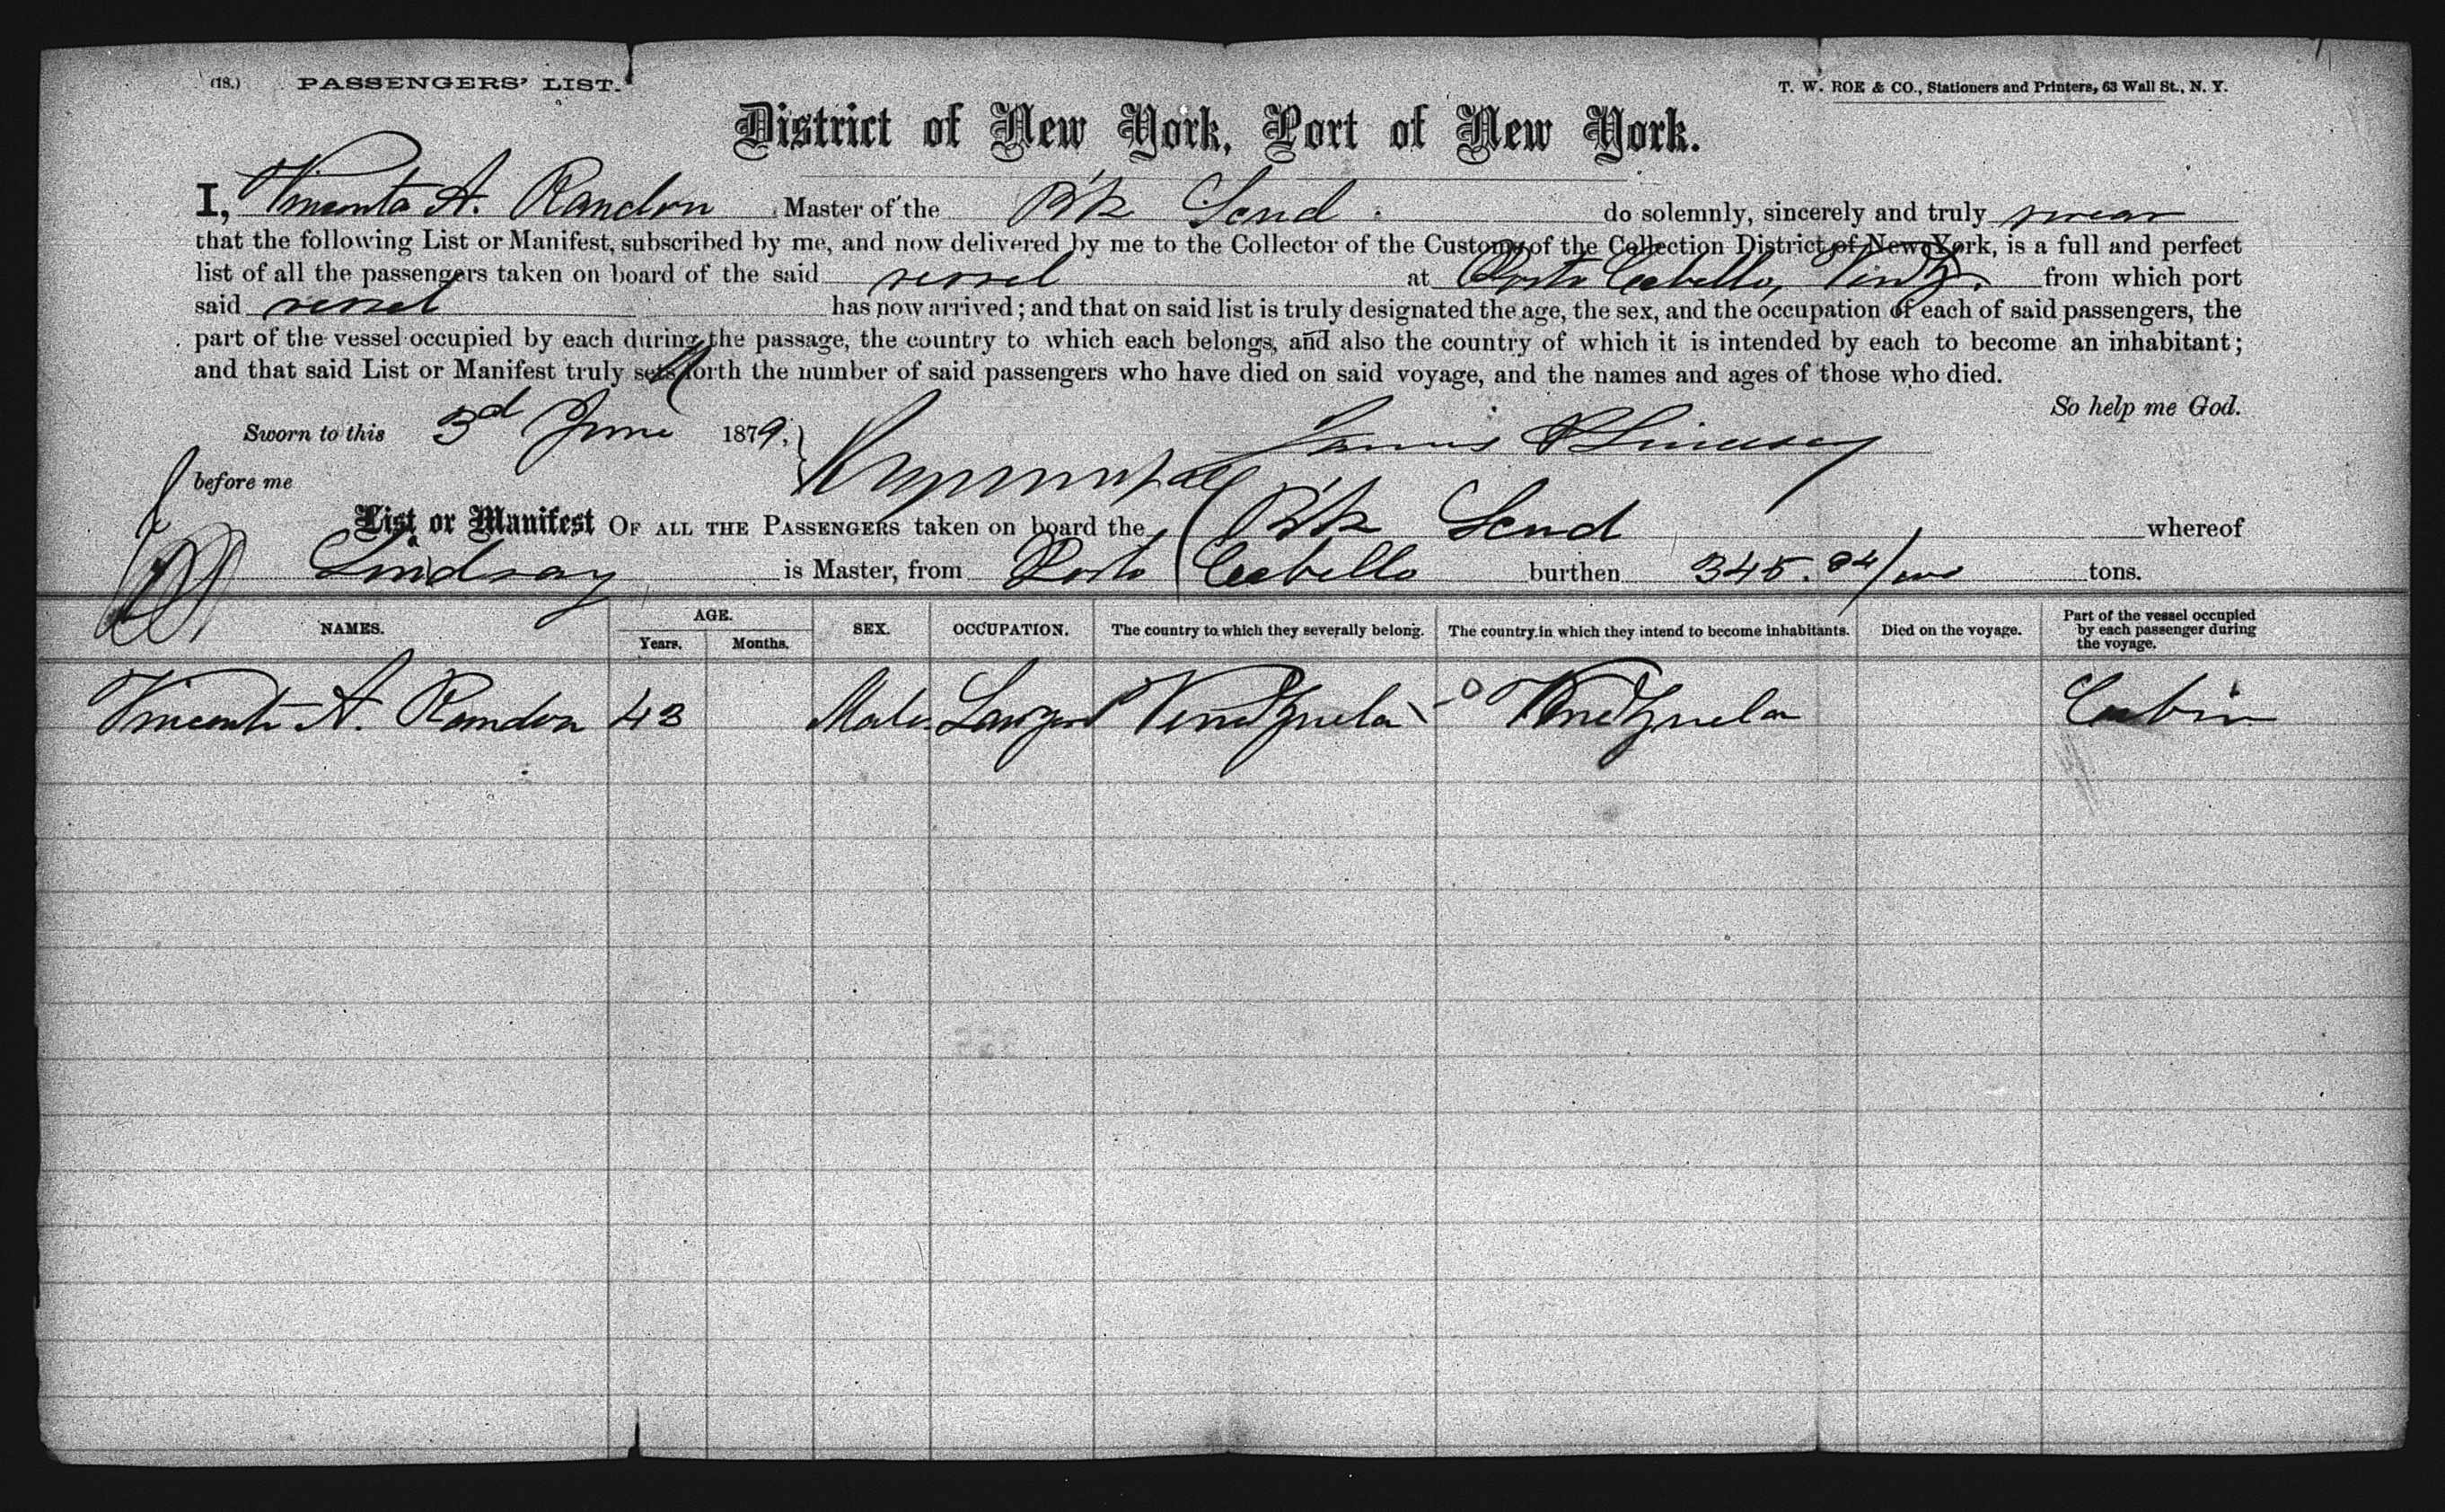 (18.) PASSENGERS' LIST.
T. W. ROE & CO., Stationers and Printers, 63 Wall St., N. Y.
District of New York, Port of New York.
I, Vincento A. Randon Master of the B'k Scud. do solemnly, sincerely and truly swear
that the following List or Manifest, subscribed by me, and now delivered by me to the Collector of the Customs of the Collection District of New York, is a full and perfect
list of all the passengers taken on board of the said vessel at Porto Cabello, from which port
said vessel has now arrived; and that on said list is truly designated the age, the sex, and the occupation of each of said passengers, the
part of the vessel occupied by each during the passage, the country to which each belongs, and also the country of which it is intended by each to become an inhabitant;
and that said List or Manifest truly sets forth the number of said passengers who have died on said voyage, and the names and ages of those who died.
So help me God.
Sworn to this 3d June 1879. James Lindsay
before me
List or Manifest OF ALL THE PASSENGERS taken on board the B'k Scud whereof
Lindsay is Master, from Porto Cabello burthen 345. tons.
NAMES. AGE. Years. Months. SEX. OCCUPATION. The country to which they severally belong. The country in which they intend to become inhabitants. Died on the voyage. Part of the vessel occupied by each passenger during the voyage.
Vincento A. Randon 43 Male Lawyer Venezuela Venezuela Cabin